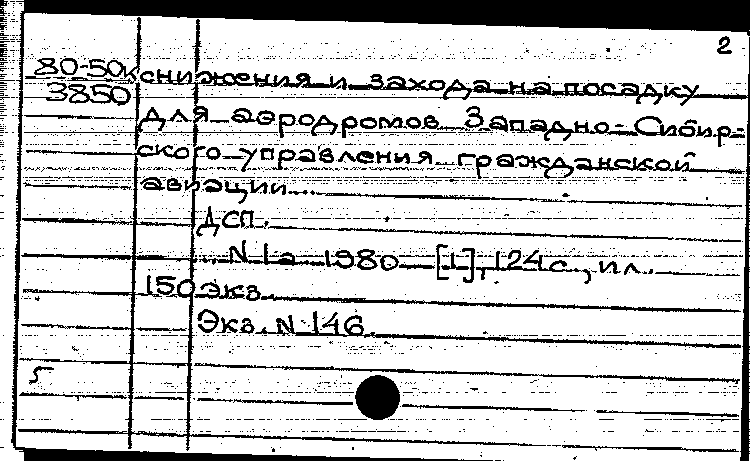 2
80-50к снижения и захода на посадку
3850 для аэродромов Западно-Сибир-
ского управления гражданской
авиации...
ДСП.
N 1а 1980 [1], 124 с., ил.
150 экз.
Экз. N 146.
5